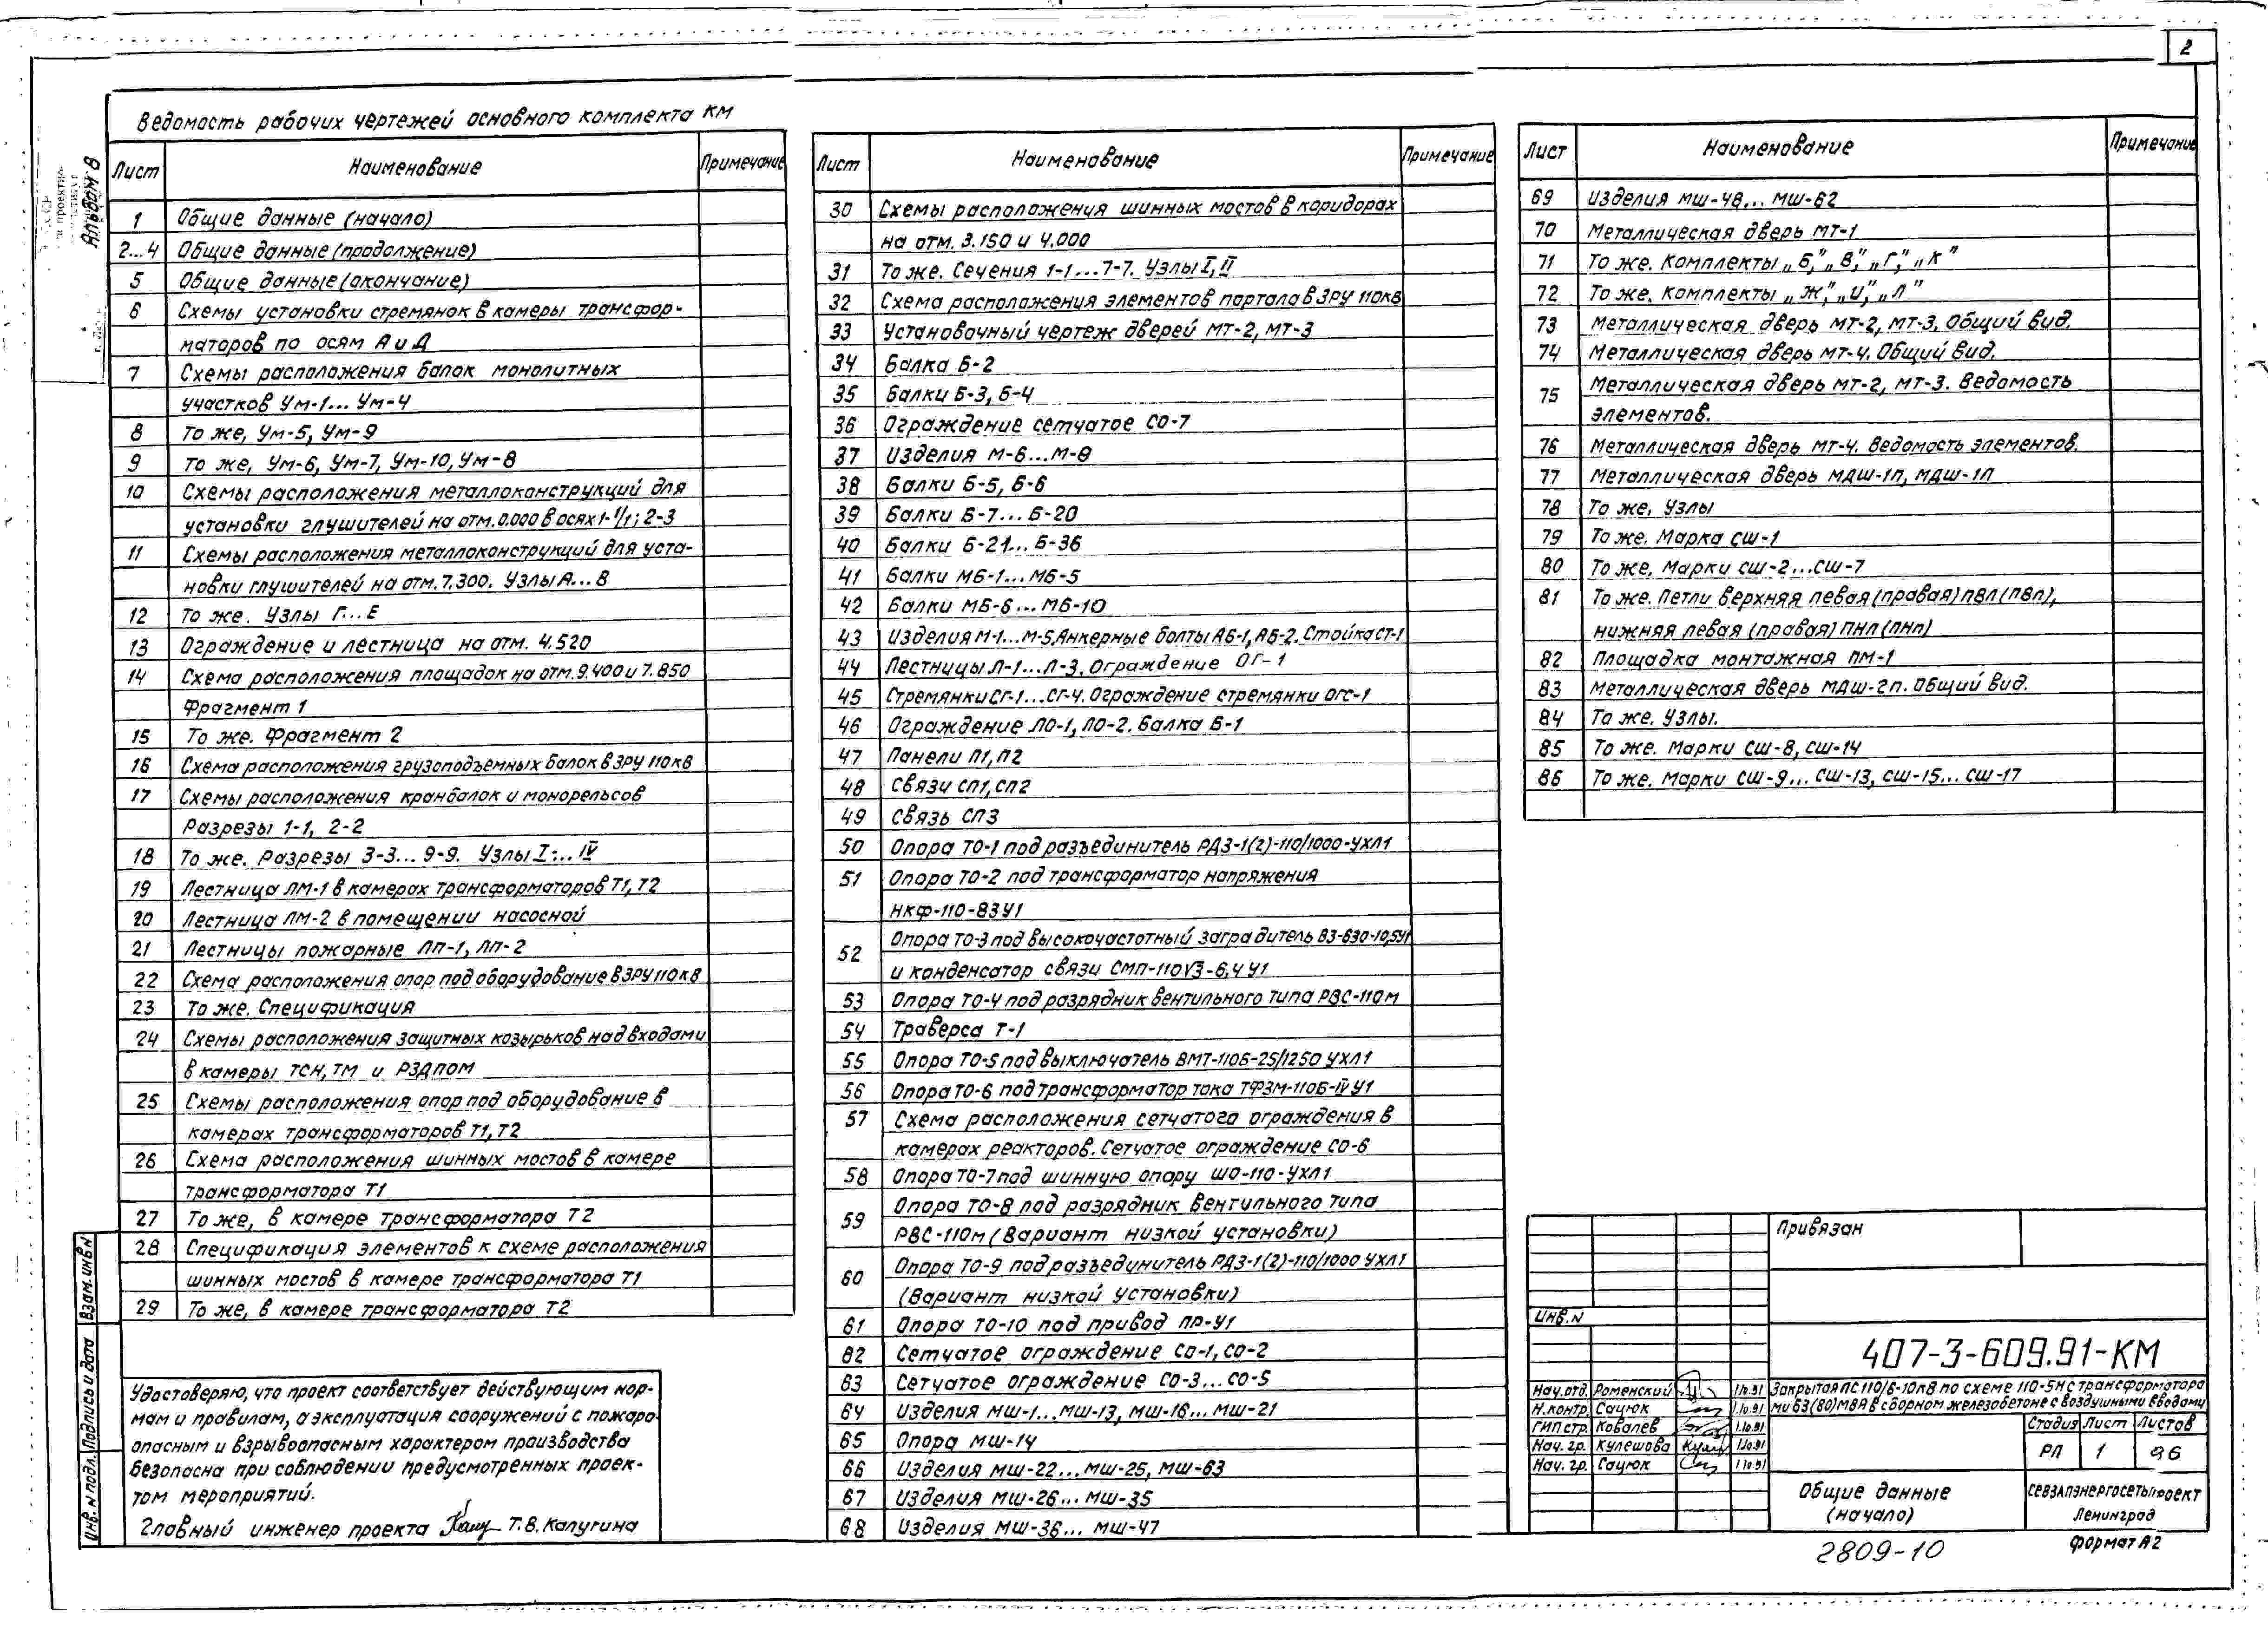 2
Альбом 8
Ведомость рабочих чертежей основного комплекта КМ
Лист Наименование Примечание
1 Общие данные (начало)
2...4 Общие данные (продолжение)
5 Общие данные (окончание)
6 Схемы установки стремянок в камеры трансфор-
маторов по осям А и Д
7 Схемы расположения балок монолитных
участков Ум-1... Ум-4
8 То же, Ум-5, Ум-9
9 То же, Ум-6, Ум-7, Ум-10, Ум-8
10 Схемы расположения металлоконструкций для
установки глушителей на отм. 0.000 в осях 1-1/1; 2-3
11 Схемы расположения металлоконструкций для уста-
новки глушителей на отм. 7.300. Узлы А...В
12 То же. Узлы Г...Е
13 Ограждение и лестница на отм. 4.520
14 Схема расположения площадок на отм. 9.400 и 7.850
Фрагмент 1
15 То же. Фрагмент 2
16 Схема расположения грузоподъемных балок в ЗРУ 110кв
17 Схемы расположения кранбалок и монорельсов
Разрезы 1-1, 2-2
18 То же. Разрезы 3-3... 9-9. Узлы I... IV
19 Лестница ЛМ-1 в камерах трансформаторов Т1, Т2
20 Лестница ЛМ-2 в помещении насосной
21 Лестницы пожарные ЛП-1, ЛП-2
22 Схема расположения опор под оборудование в ЗРУ 110кв
23 То же. Спецификация
24 Схемы расположения защитных козырьков над входами
в камеры ТСН, ТМ и РЗДПОМ
25 Схемы расположения опор под оборудование в
камерах трансформаторов Т1, Т2
26 Схема расположения шинных мостов в камере
трансформатора Т1
27 То же, в камере трансформатора Т2
28 Спецификация элементов к схеме расположения
шинных мостов в камере трансформатора Т1
29 То же, в камере трансформатора Т2
Удостоверяю, что проект соответствует действующим нор-
мам и правилам, а эксплуатация сооружений с пожаро-
опасным и взрывоопасным характером производства
безопасна при соблюдении предусмотренных проек-
том мероприятий.
Главный инженер проекта Т.В. Калугина
Инв. N подл. Подпись и дата Взам. инв N
Лист Наименование Примечание
30 Схемы расположения шинных мостов в коридорах
на отм. 3.150 и 4.000
31 То же. Сечения 1-1...7-7. Узлы I, II
32 Схема расположения элементов портала в ЗРУ 110кв
33 Установочный чертеж дверей МТ-2, МТ-3
34 Балка Б-2
35 Балки Б-3, Б-4
36 Ограждение сетчатое СО-7
37 Изделия М-6...М-8
38 Балки Б-5, Б-6
39 Балки Б-7... Б-20
40 Балки Б-21... Б-36
41 Балки МБ-1... МБ-5
42 Балки МБ-6... МБ-10
43 Изделия М-1...М-5, Анкерные болты АБ-1, АБ-2. Стойка СТ-1
44 Лестницы Л-1...Л-3. Ограждение ОГ-1
45 Стремянки СГ-1...СГ-4. Ограждение стремянки ОГС-1
46 Ограждение ЛО-1, ЛО-2. Балка Б-1
47 Панели П1, П2
48 Связи СП1, СП2
49 Связь СП3
50 Опора ТО-1 под разъединитель РДЗ-1(2)-110/1000-УХЛ1
51 Опора ТО-2 под трансформатор напряжения
НКФ-110-83У1
52 Опора ТО-3 под высокочастотный заградитель ВЗ-630-10,5У1
и конденсатор связи СМП-110√3-6,4 У1
53 Опора ТО-4 под разрядник вентильного типа РВС-110м
54 Траверса Т-1
55 Опора ТО-5 под выключатель ВМТ-110Б-25/1250 УХЛ1
56 Опора ТО-6 под трансформатор тока ТФЗМ-110Б-IV У1
57 Схема расположения сетчатого ограждения в
камерах реакторов. Сетчатое ограждение СО-6
58 Опора ТО-7 под шинную опору ШО-110-УХЛ1
59 Опора ТО-8 под разрядник вентильного типа
РВС-110м (Вариант низкой установки)
60 Опора ТО-9 под разъединитель РДЗ-1(2)-110/1000 УХЛ1
(Вариант низкой установки)
61 Опора ТО-10 под привод ПР-У1
62 Сетчатое ограждение СО-1, СО-2
63 Сетчатое ограждение СО-3... СО-5
64 Изделия МШ-1... МШ-13, МШ-16... МШ-21
65 Опора МШ-14
66 Изделия МШ-22... МШ-25, МШ-63
67 Изделия МШ-26... МШ-35
68 Изделия МШ-36... МШ-47
Лист Наименование Примечание
69 Изделия МШ-48... МШ-62
70 Металлическая дверь МТ-1
71 То же. Комплекты „Б", „В", „Г", „К"
72 То же. Комплекты „Ж", „И", „Л"
73 Металлическая дверь МТ-2, МТ-3. Общий вид.
74 Металлическая дверь МТ-4. Общий вид.
75 Металлическая дверь МТ-2, МТ-3. Ведомость
элементов.
76 Металлическая дверь МТ-4. Ведомость элементов.
77 Металлическая дверь МДШ-1П, МДШ-1Л
78 То же. Узлы
79 То же. Марка СШ-1
80 То же. Марки СШ-2...СШ-7
81 То же. Петли верхняя левая (правая) ПВЛ (ПВП),
нижняя левая (правая) ПНЛ (ПНП)
82 Площадка монтажная ПМ-1
83 Металлическая дверь МДШ-2П. Общий вид.
84 То же. Узлы.
85 То же. Марки СШ-8, СШ-14
86 То же. Марки СШ-9... СШ-13, СШ-15... СШ-17
Привязан
Инв. N
407-3-609.91-КМ
Нач. отд. Роменский 1.10.91
Н. контр. Сацюк 1.10.91
ГИП стр. Ковалев 1.10.91
Нач. гр. Кулешова 1.10.91
Нач. гр. Сацюк 1.10.91
Закрытая ПС 110/6-10кв по схеме 110-5Н с трансформатора
ми 63(80) МВА в сборном железобетоне с воздушными вводами
Стадия Лист Листов
РП 1 96
Общие данные
(начало)
Севзапэнергосетьпроект
Ленинград
2809-10
Формат А2